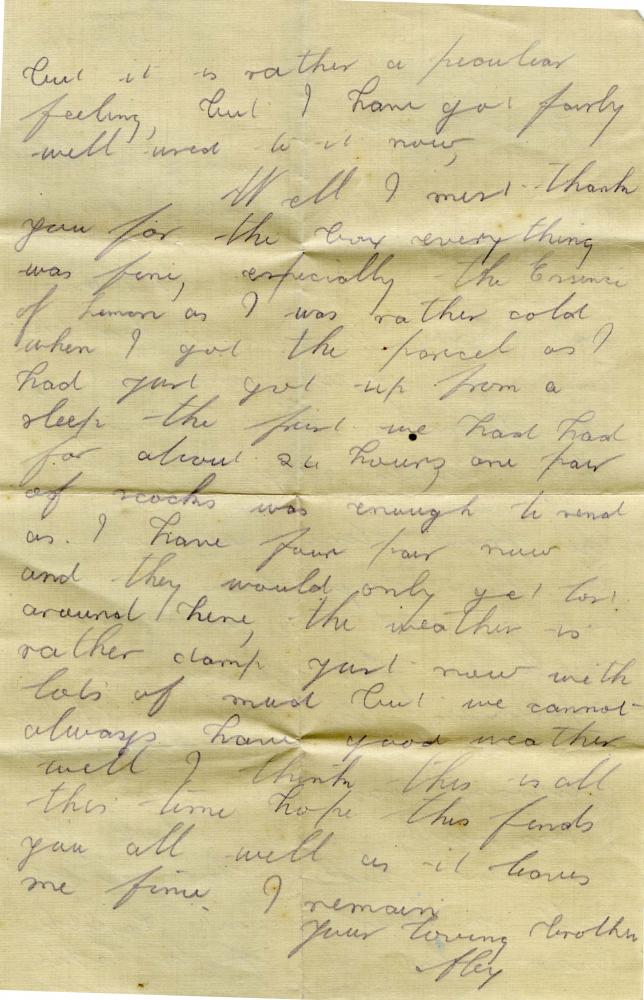 but it is rather a peculiar
feeling, but I have got fairly
well used to it now,
Well I must thank
you for the box everything
was fine, especially the Essence
of Lemon as I was rather cold
when I got the parcel as I
had just got up from a
sleep the first we had had
for about 24 hours, one pair
of socks was enough to send
as I have four pair now
and they would only get lost
around here, the weather is
rather damp just now with
lots of mud but we cannot
always have good weather
well I think this is all
this time hope this finds
you all well as it leaves
me fine. I remain
your loving brother
Alex